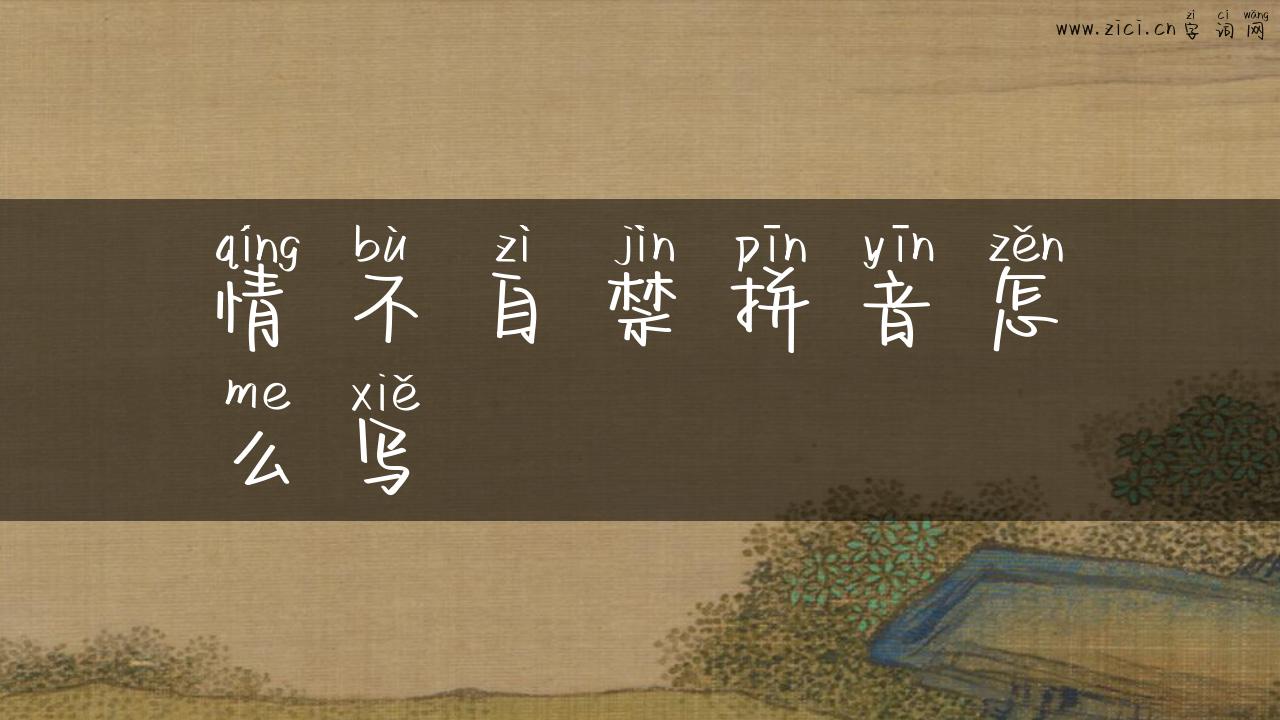 zì cí wǎng
www.zici.cn 字 词 网
qíng bù zì jìn pīn yīn zěn
情 不 自 禁 拼 音 怎
me xiě
么 写